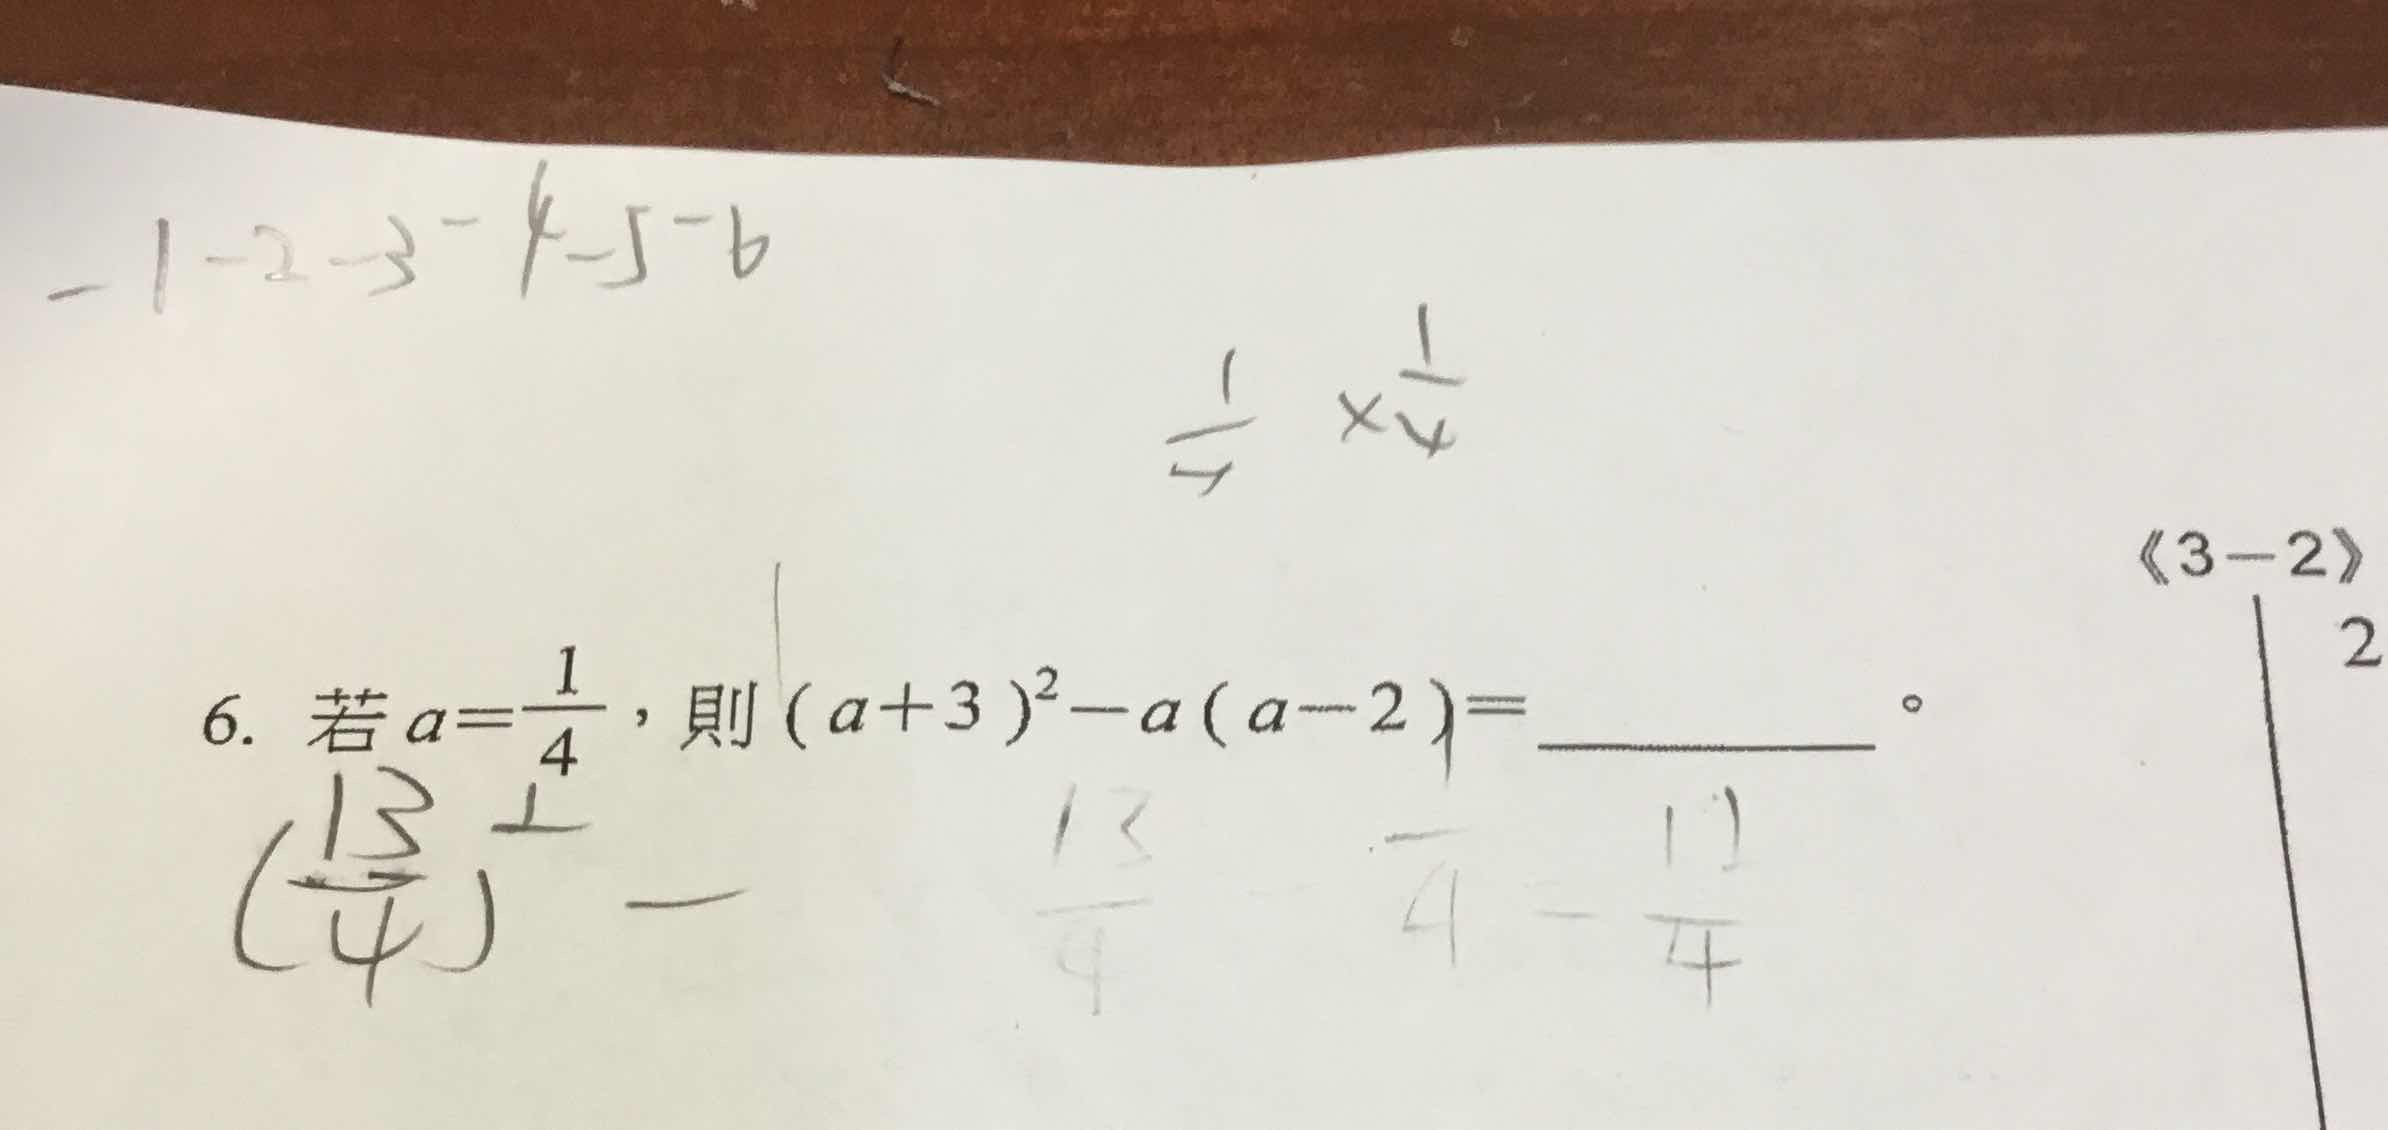 -1-2-3-4-5-6
1/4 ×1/4
《3-2》
2
6. 若a=1/4,則(a+3)²-a(a-2)=________。
(13/4)² - 13/4 - /4 - 11/4